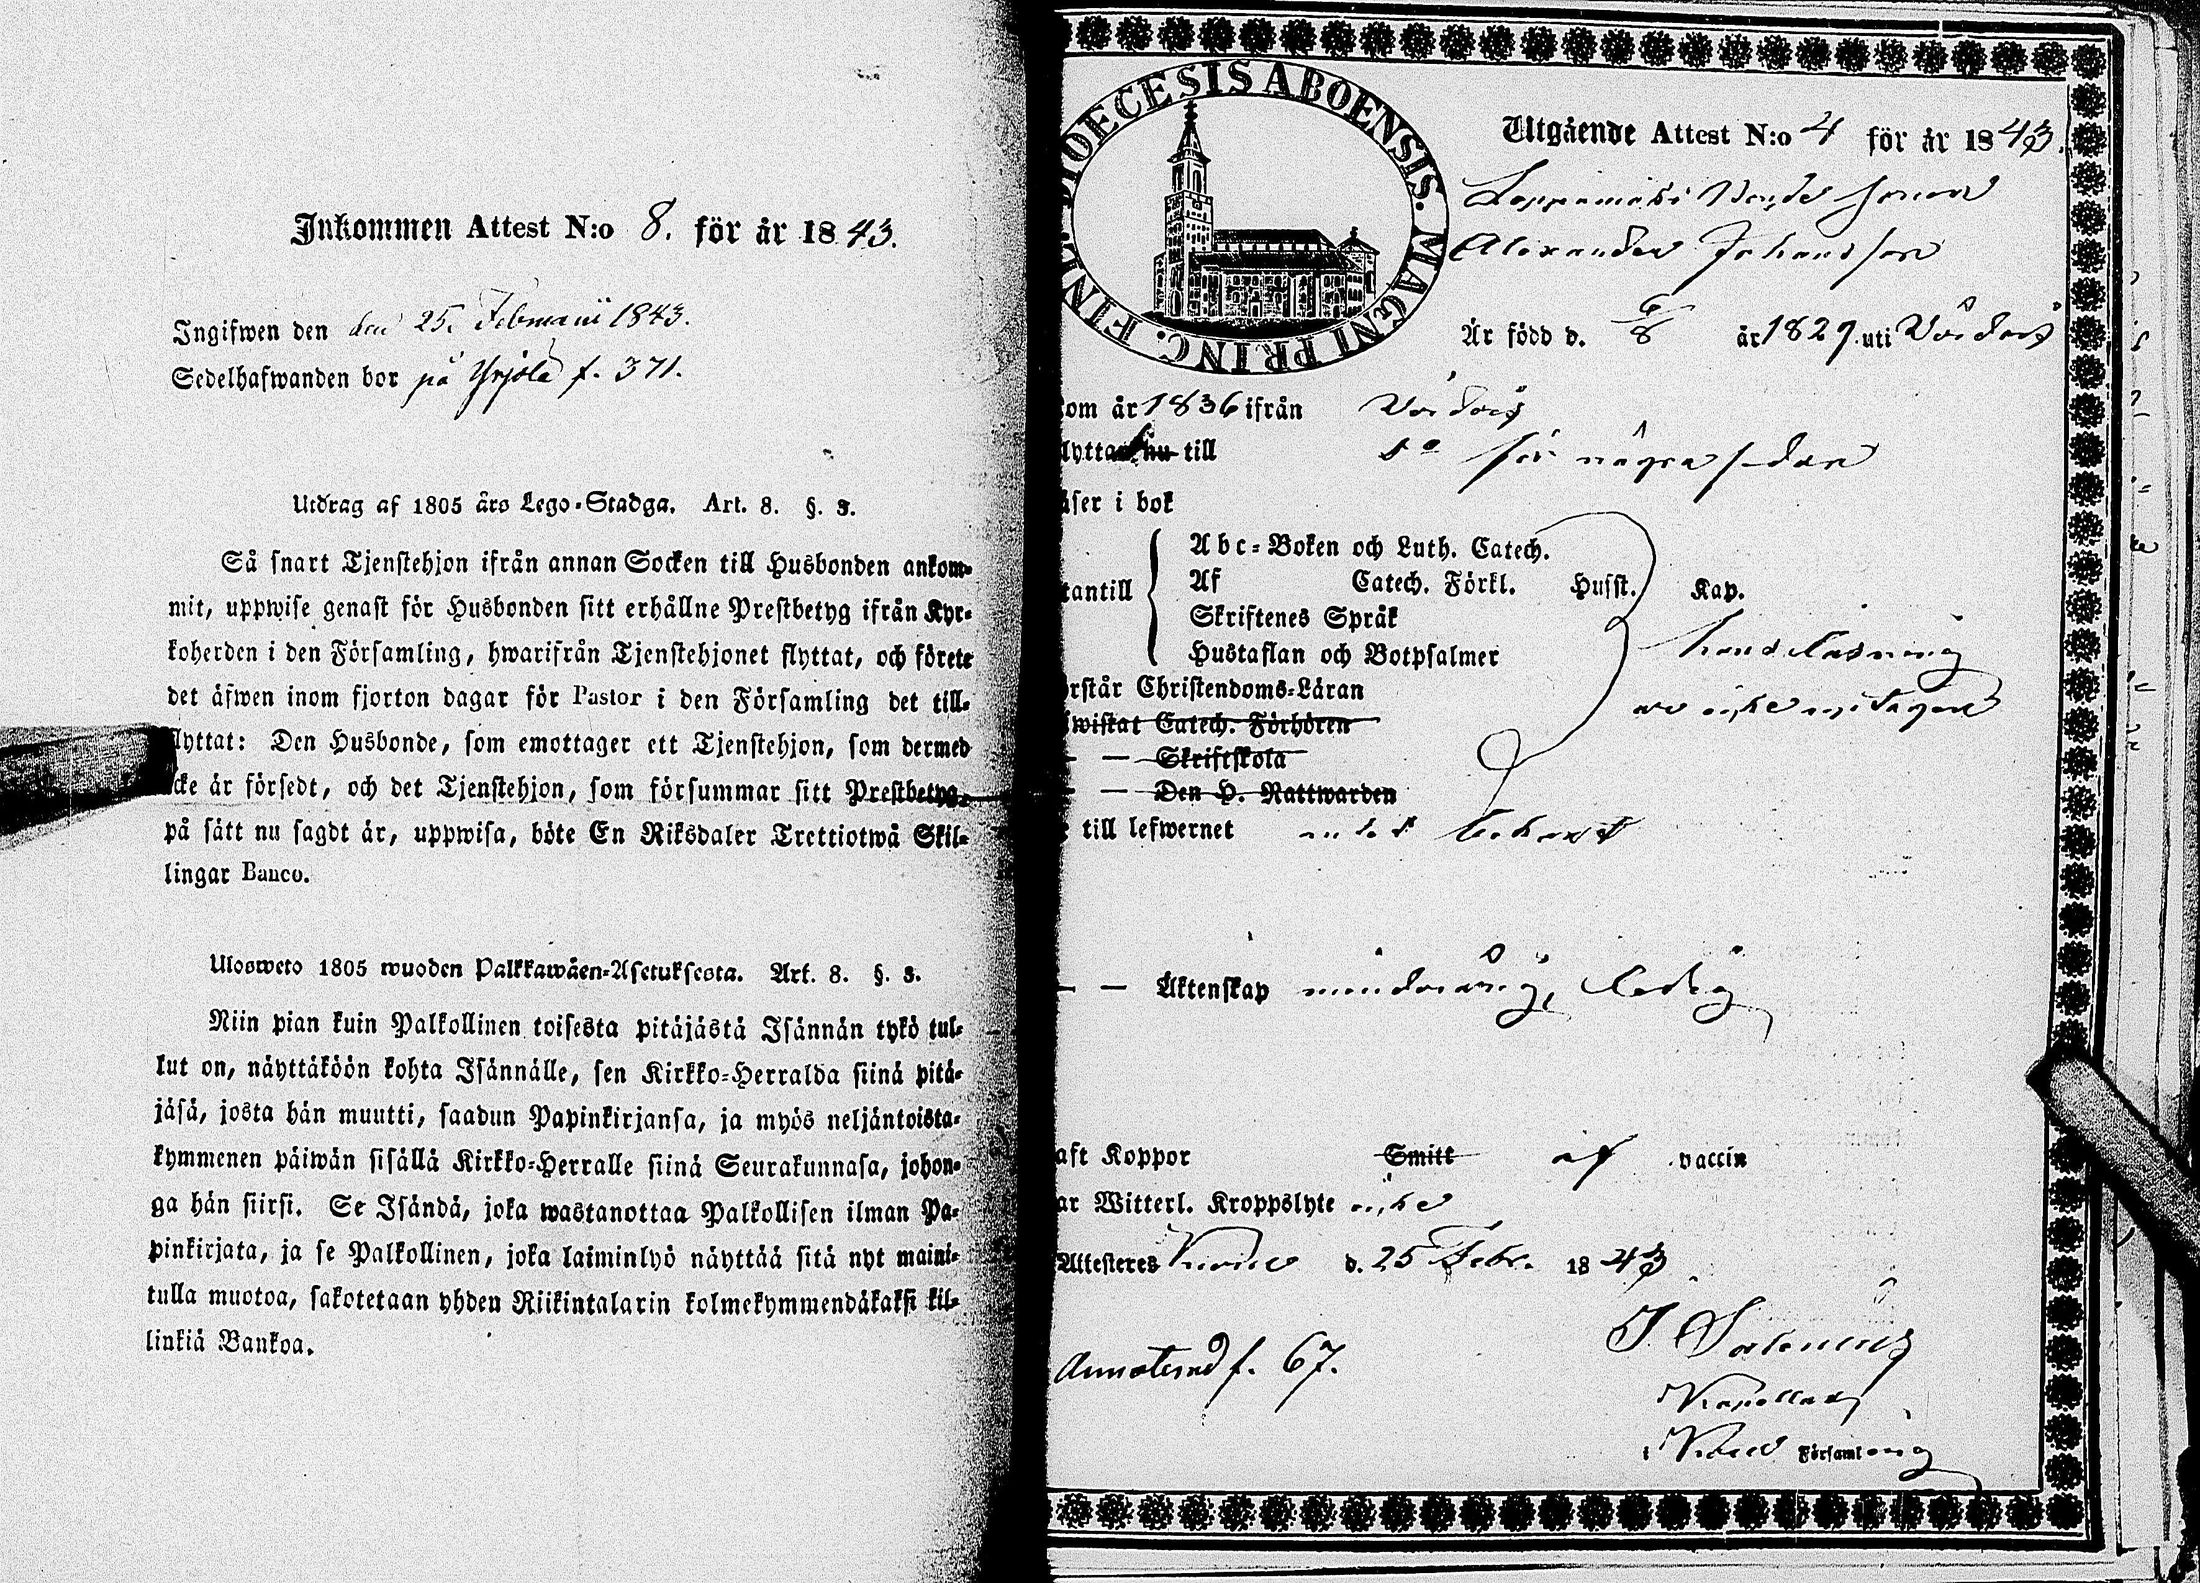 Inkommen Attest N:o 8. för år 1843.
Ingifwen den den 25. Februarii 1843.
Sedelhafwanden bor på Yrjölä f. 371.
Utdrag af 1805 års Lego-Stadga. Art. 8. §. 3.
Så snart Tjenstehjon ifrån annan Socken till Husbonden ankom-
mit, uppwise genast för Husbonden sitt erhållne Prestbetyg ifrån Kyr-
koherden i den Församling, hwarifrån Tjenstehjonet flyttat, och förete
det äfwen inom fjorton dagar för Pastor i den Församling det till-
flyttat: Den Husbonde, som emottager ett Tjenstehjon, som dermed
icke är försedt, och det Tjenstehjon, som försummar sitt Prestbetyg,
på sätt nu sagdt är, uppwisa, böte En Riksdaler Trettiotwå Skil-
lingar Banco.
Ulosweto 1805 wuoden Palkkawäen-Asetuksesta. Art. 8. §. 3.
Niin pian kuin Palkollinen toisesta pitäjästä Isännän tykö tul-
lut on, näyttäköön kohta Isännälle, sen Kirkko-Herralda siinä pitä-
jäsä, josta hän muutti, saadun Papinkirjansa, ja myös neljäntoista-
kymmenen päiwän sisällä Kirkko-Herralle siinä Seurakunnasa, johon-
ga hän siirsi. Se Isändä, joka wastanottaa Palkollisen ilman Pa-
pinkirjata, ja se Palkollinen, joka laiminlyö näyttää sitä nyt maini-
tulla muotoa, sakotetaan yhden Riikintalarin kolmekymmendäkaksi kil-
linkiä Bankoa.
DIOECESIS ABOENSIS. MAGNI PRINC. FINL.
Utgående Attest N:o 4 för år 1843.
Alexander Johansson
Är född d. 6/8 år 1829 uti
om år 1836 ifrån
lyttar nu till do för några
äser i bok
Abc-Boken och Luth. Catech.
tantill Af Catech. Förkl. Husst. Kap.
Skriftenes Språk
Hustaflan och Botpsalmer
rstår Christendoms-Läran
wistat Catech. Förhören
— — Skriftskola
— — Den H. Nattwarden
till lefwernet
— — Äktenskap minderårig, ledig
aft Koppor Smitt af vaccin
ar Witterl. Kroppslyte icke
Attesteres d. 25 Febr. 1843
J.
Annoterad f. 67.
Kapellan
i Församling